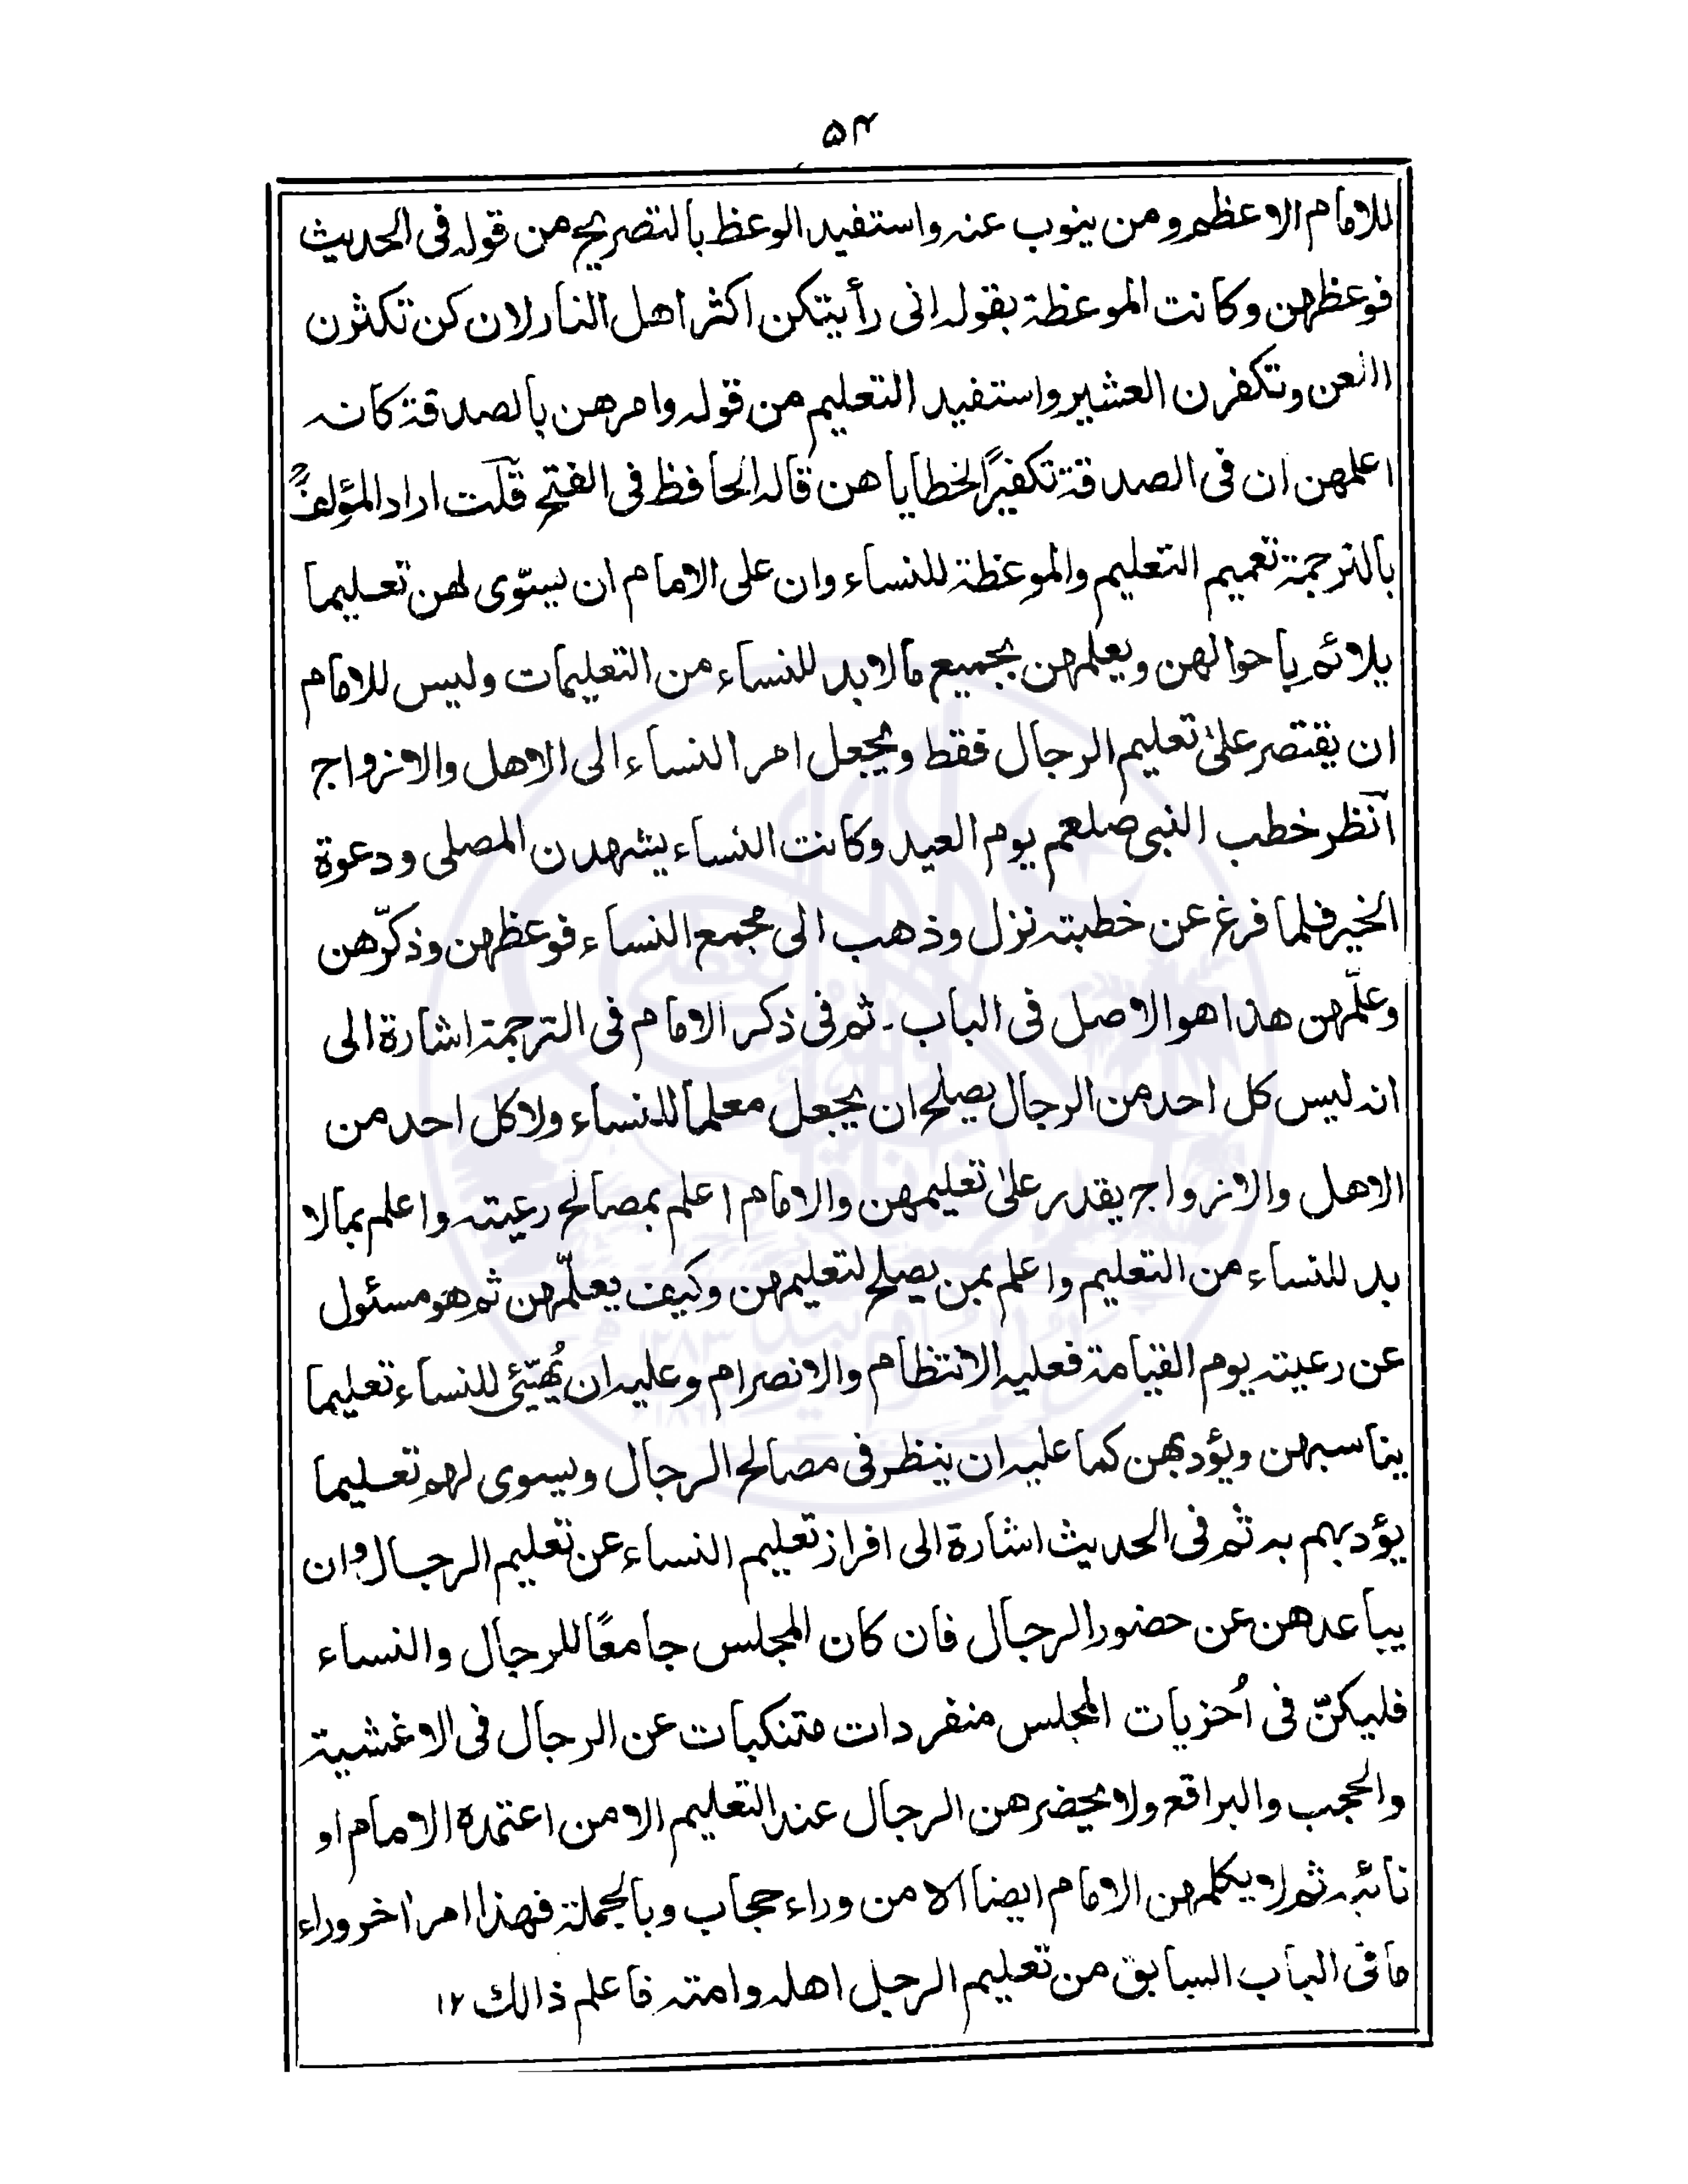 ۵۴
للامام الاعظم ومن ينوب عنه واستفيد الوعظ بالتصريح من قوله فى الحديث
فوعظهن وكانت الموعظة بقوله انى رأيتكن اكثر اهل النار لان كن تكثرن
اللعن وتكفرن العشير واستفيد التعليم من قوله وامرهن بالصدقة كانه
اعلمهن ان فى الصدقة تكفيرًا لخطاياهن قاله الحافظ فى الفتح قلت اراد المؤلف
بالترجمة تعميم التعليم والموعظة للنساء وان على الامام ان يسوّى لهن تعليما
يلائم باحوالهن ويعلمهن بجميع مالابد للنساء من التعليمات وليس للامام
ان يقتصر علىٰ تعليم الرجال فقط ويجعل امر النساء الى الاهل والازواج
آنظر خطب النبى صلعم يوم العيد وكانت النساء يشهدن المصلى ودعوة
الخير فلما فرغ عن خطبته نزل وذهب الى مجمع النساء فوعظهن وذكّرهن
وعلّمهن هذا هو الاصل فى الباب۔ ثم فى ذكر الامام فى الترجمة اشارة الى
انه ليس كل احد من الرجال يصلح ان يجعل معلما للنساء ولا كل احد من
الاهل والازواج يقدر علىٰ تعليمهن والامام اعلم بمصالح رعيته واعلم بمالا
بد للنساء من التعليم واعلم بمن يصلح لتعليمهن وكيف يعلّمهن ثم هو مسئول
عن رعيته يوم القيامة فعليه الانتظام والانصرام وعليه ان يُهيّئ للنساء تعليما
يناسبهن ويؤدبهن كما عليه ان ينظر فى مصالح الرجال ويسوى لهم تعليما
يؤدبهم به ثم فى الحديث اشارة الى افراز تعليم النساء عن تعليم الرجال وان
يباعدهن عن حضور الرجال فان كان المجلس جامعًا للرجال والنساء
فليكنّ فى اُخزيات المجلس منفردات متنكبات عن الرجال فى الاغشية
والحجب والبراقع ولا يحضرهن الرجال عند التعليم الا من اعتمده الامام او
نائبه ثم لا يكلمهن الامام ايضا الا من وراء حجاب وبالجملة فهذا امر اٰخر وراء
مافى الباب السابق من تعليم الرجل اهله وامته فاعلم ذالك ۱۲